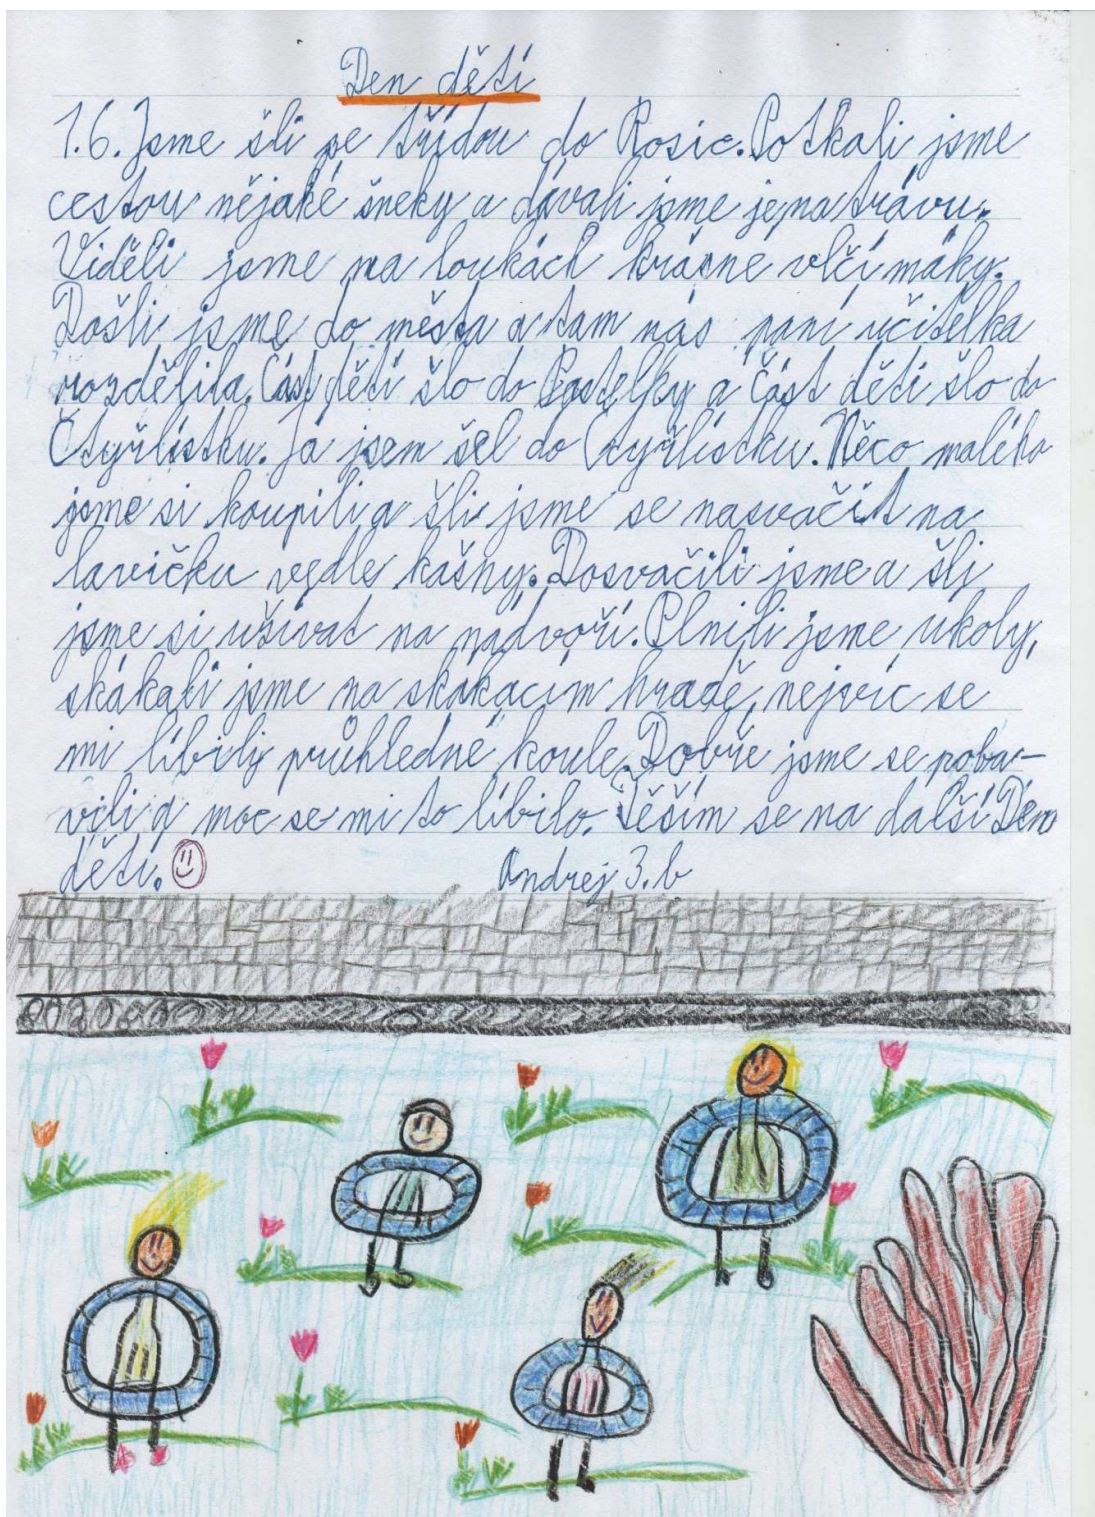 Den dětí
1.6. Jsme šli se třídou do Rosic. Potkali jsme
cestou nějaké šneky a dávali jsme je na trávu.
Viděli jsme na loukách krásné vlčí máky.
Došli jsme do města a tam nás paní učitelka
rozdělila. Část dětí šlo do Pastelky a část dětí šlo do
Čtyřlístku. Já jsem šel do Čtyřlístku. Něco malého
jsme si koupili a šli jsme se nasvačit na
lavičku vedle kašny. Dosvačili jsme a šli
jsme si užívat na nádvoří. Plnili jsme úkoly,
skákali jsme na skákacím hradě, nejvíc se
mi líbily průhledné koule. Dobře jsme se poba-
vili a moc se mi to líbilo. Těším se na další Den
dětí.
Andrej 3.b